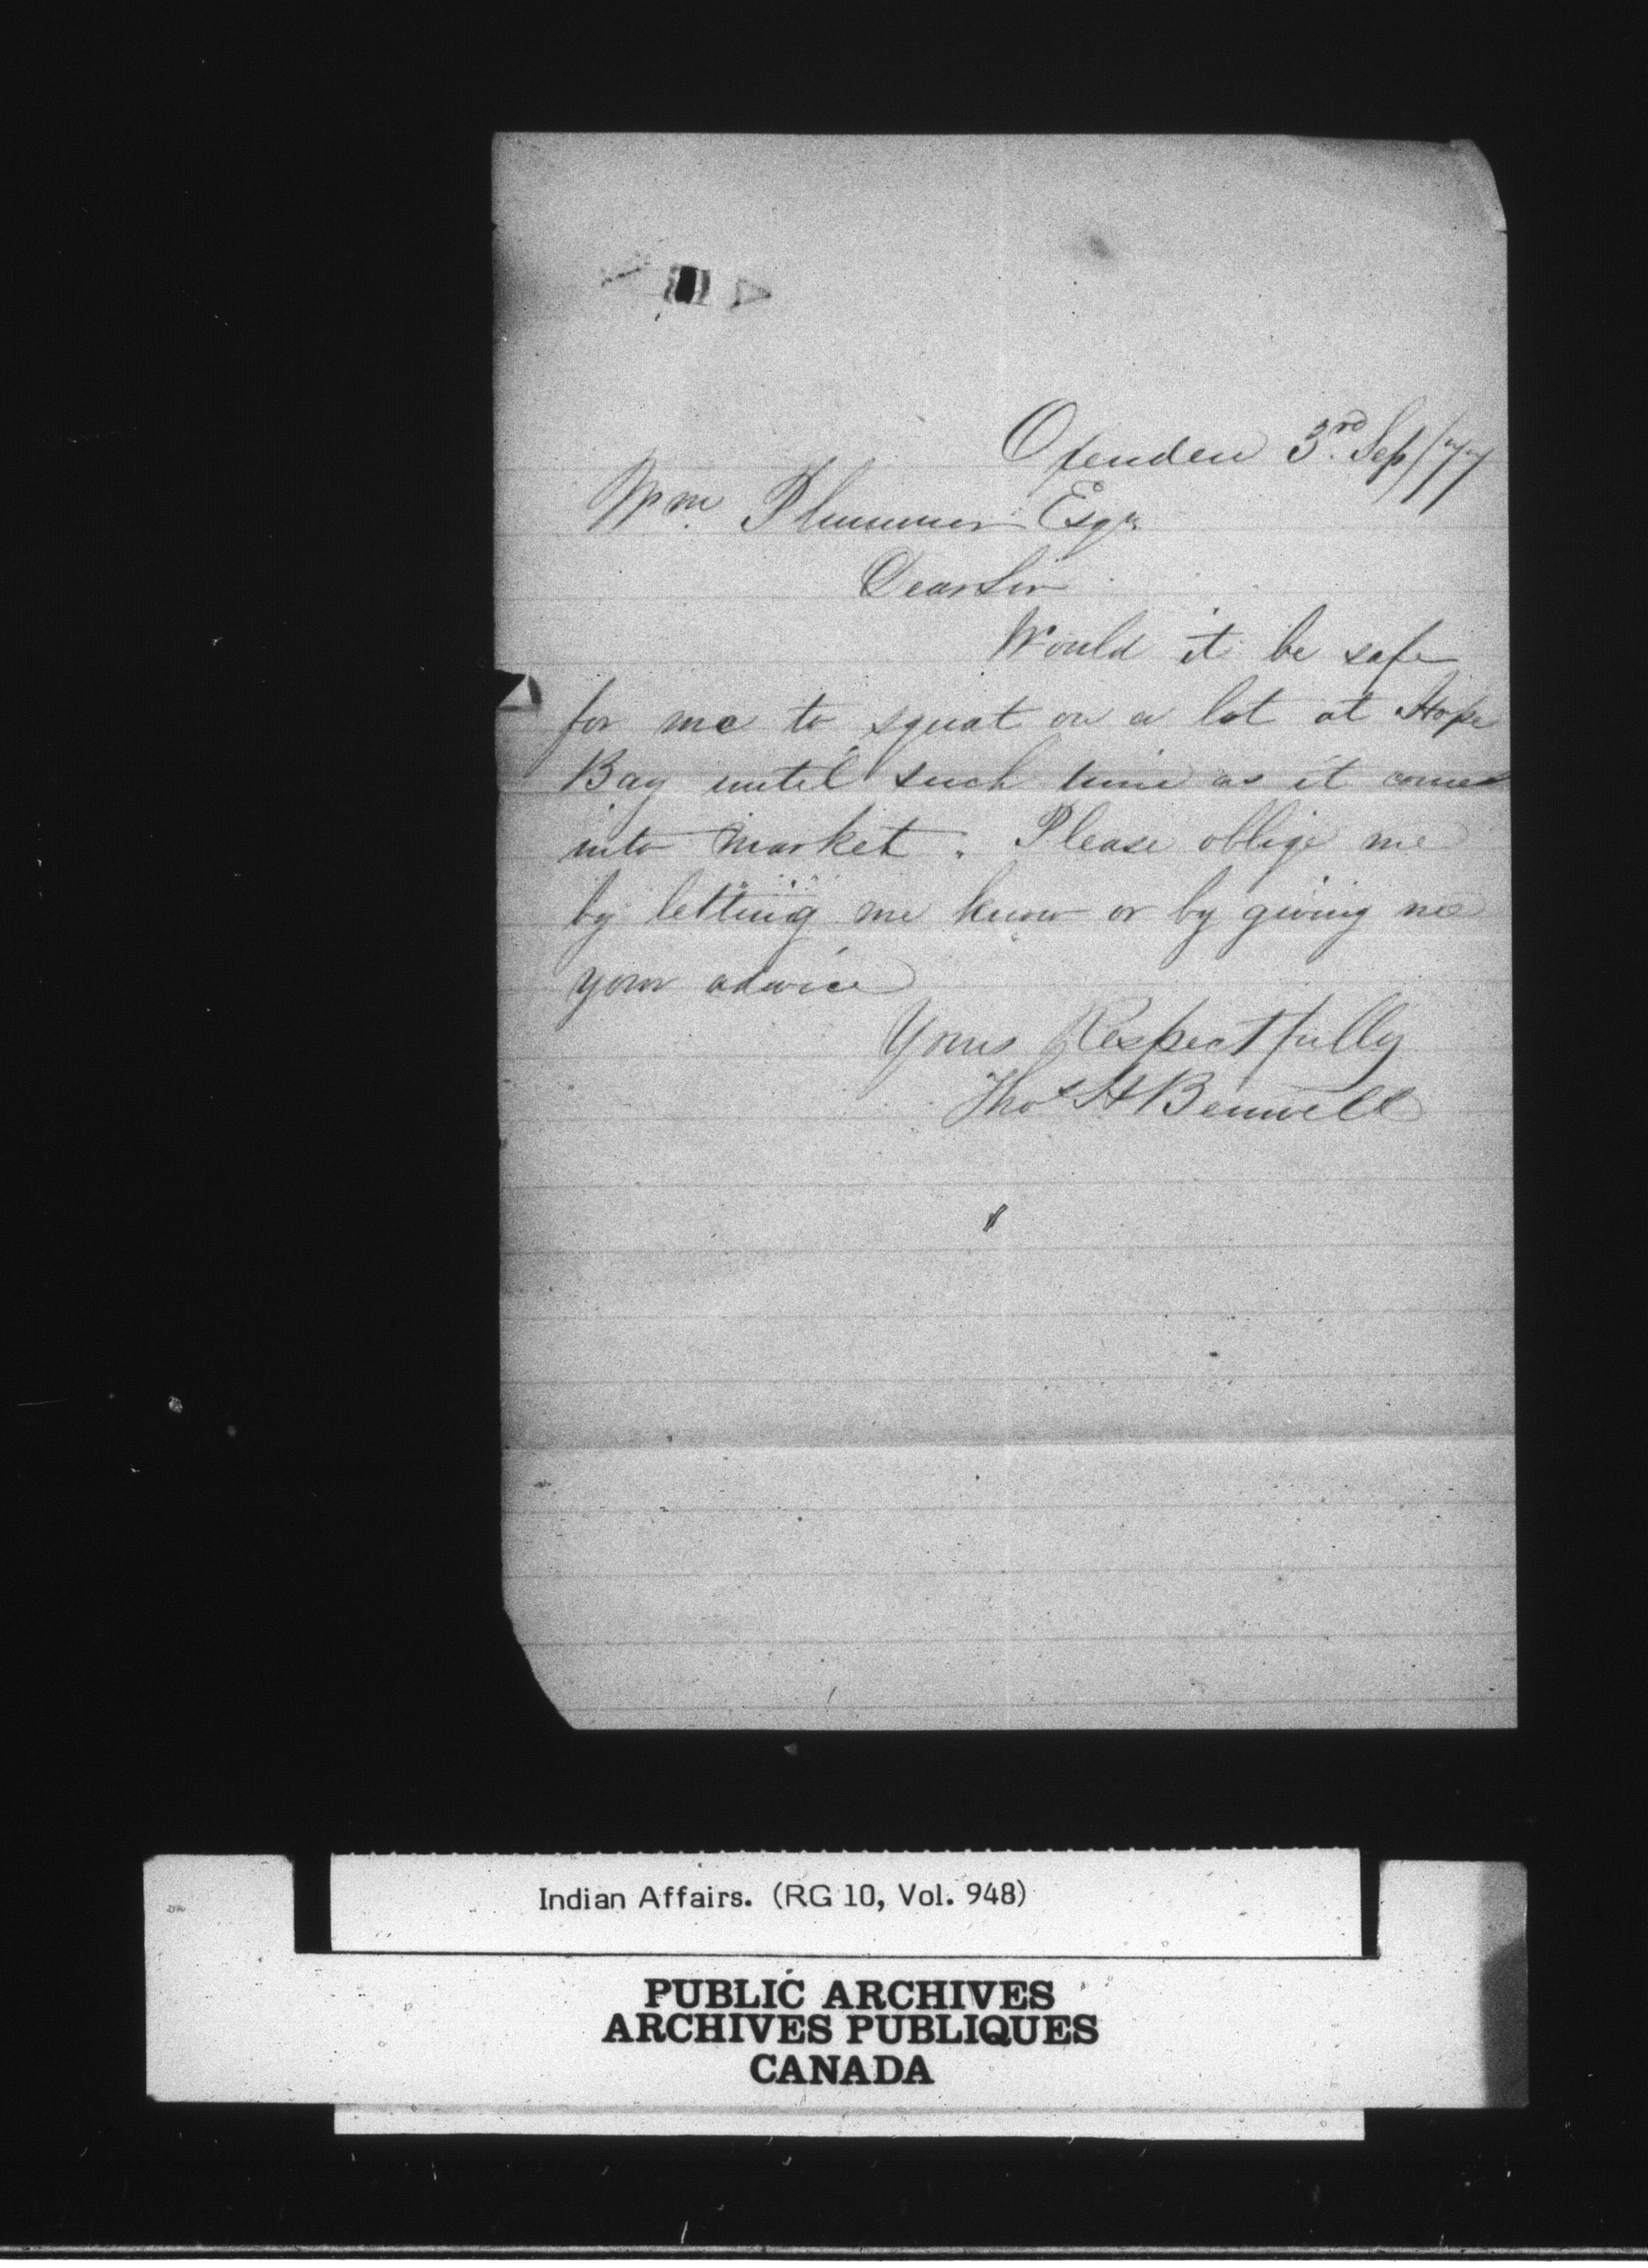 Oxenden 3rd. Sep/77
Wm. Plummer Esqr.
Dear Sir
Would it be safe
for me to squat on a lot at Hope
Bay until such time as it comes
into market. Please oblige me
by letting me know or by giving me
your advice
Yours Respectfully
Thos H Benwell
Indian Affairs. (RG 10, Vol. 948)
PUBLIC ARCHIVES
ARCHIVES PUBLIQUES
CANADA